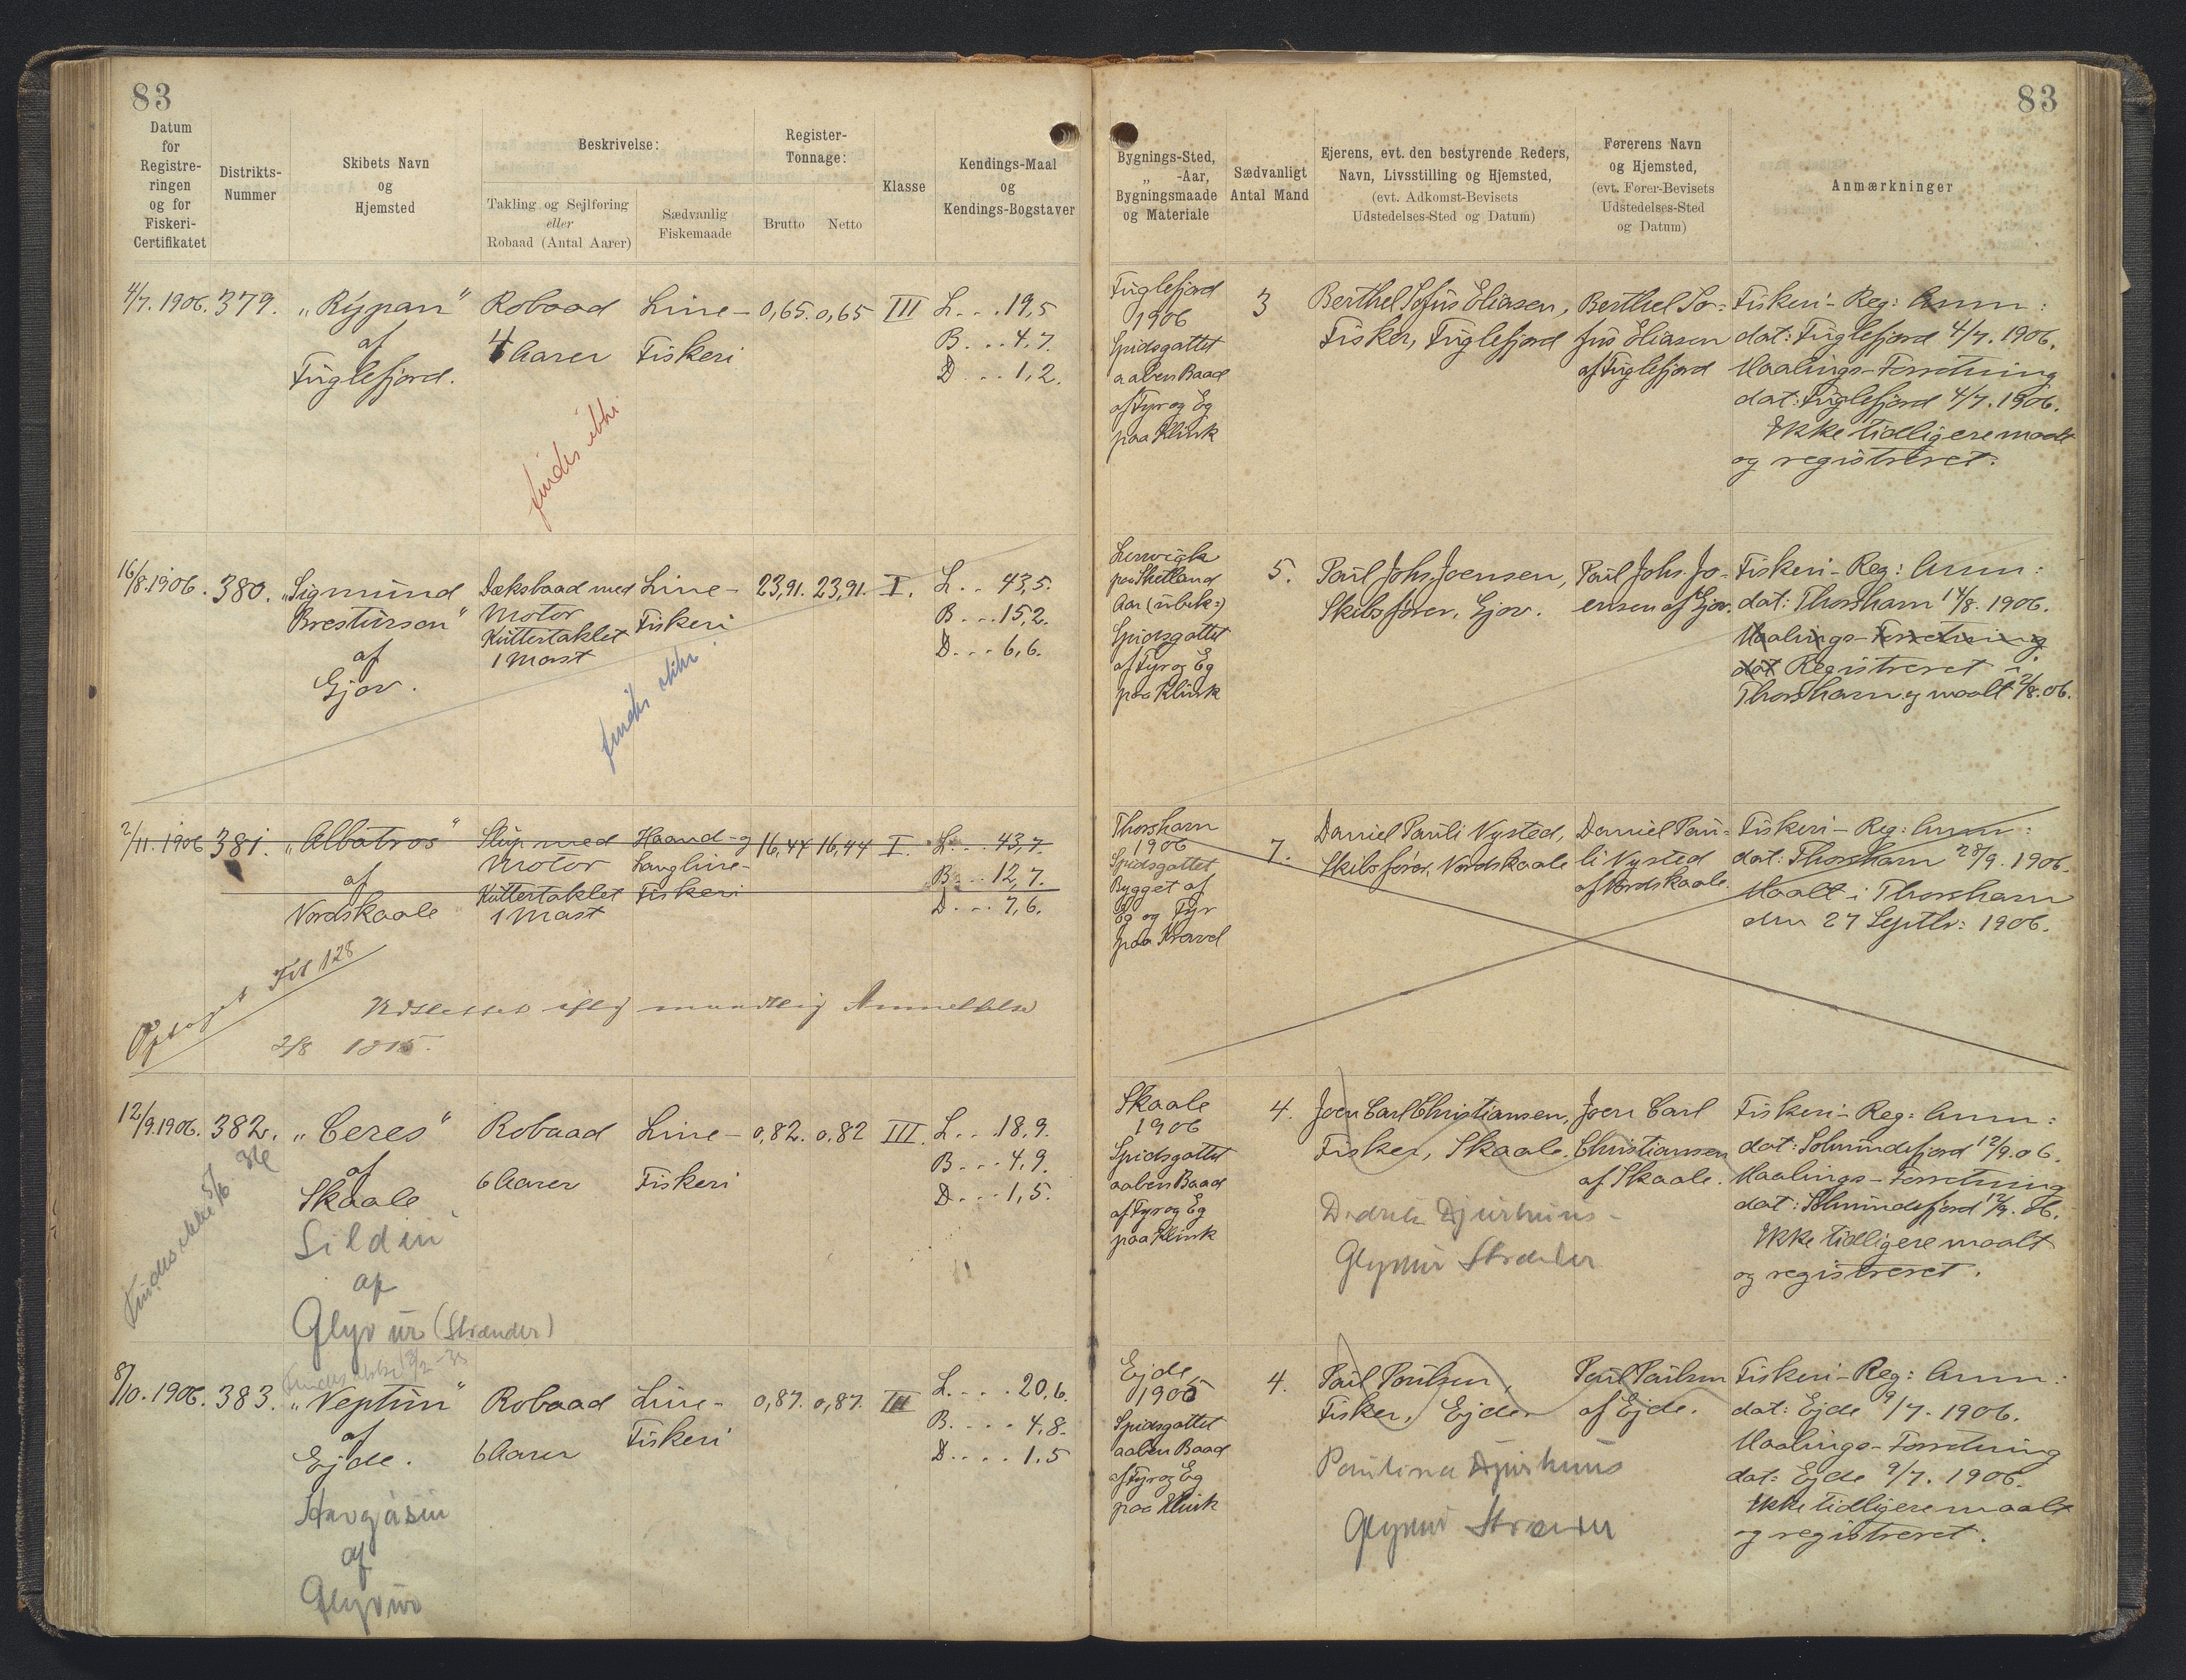 83
Datum for Registreringen og for Fiskeri-Certifikatet
Distrikts-Nummer
Skibets Navn og Hjemsted
Beskrivelse:
Takling og Sejlføring eller Robaad (Antal Aarer)
Sædvanlig Fiskemaade
Register-Tonnage:
Brutto
Netto
Klasse
Kendings-Maal og Kendings-Bogstaver
4/7. 1906. 379. „Rypan" Robaad Line- 0,65. 0,65 III L. . . 19,5
af 4 Aarer Fiskeri B. . . 4,7.
Fuglefjord. D . . . 1,2.
findes ikke
16/8. 1906. 380. „Sigmund Dæksbaad med Line- 23,91. 23,91. I. L. . . 43,5.
Brestursson" Motor Fiskeri B. . . 15,2.
Kuttertaklet
af 1 Mast D. . . 6,6.
Gjov.
findes ikke.
2/11. 1906 381. „Albatros" Slup med Haand- og 16,44 16,44 I. L. . . 43,7.
Motor Langline- B. . . 12,7.
af Kuttertaklet Fiskeri
Nordskaale 1 Mast D. . . 7,6.
Optaget Fol 128
Udslettet iflg mundtlig Anmeldelse
2/8 1915.
12/9. 1906. 382. „Ceres" Robaad Line- 0,82. 0,82 III. L. . . 18,9.
af 6 Aarer Fiskeri B. . . 4,9.
Skaale D. . . 1,5.
Findes ikke 5/6 36
Sildin
af
Glyvur (Strænder)
Findes ikke
8/10. 1906. 383. „Neptun" Robaad Line- 0,87. 0,87. III L. . . . 20,6.
af 6 Aarer Fiskeri B. . . . 4,8.
Ejde. D. . . . 1,5
Havgásin
af
Glyvur
83
Bygnings-Sted, „ -Aar, Bygningsmaade og Materiale
Sædvanligt Antal Mand
Ejerens, evt. den bestyrende Reders, Navn, Livsstilling og Hjemsted, (evt. Adkomst-Bevisets Udstedelses-Sted og Datum)
Førerens Navn og Hjemsted, (evt. Fører-Bevisets Udstedelses-Sted og Datum)
Anmærkninger
Fuglefjord
1906
Spidsgattet
aaben Baad
af Fyr og Eg
paa Klink
3
Berthel Sofus Eliasen,
Fisker, Fuglefjord
Berthel So-
fus Eliasen
af Fuglefjord
Fiskeri-Reg: Anm:
dat: Fuglefjord 4/7. 1906.
Maalings-Forretning
dat: Fuglefjord 4/7. 1906.
Ikke tidligere maalt
og registreret.
Lerwick
paa Shetland
Aar (ubek:)
Spidsgattet
af Fyr og Eg
paa Klink
5.
Poul Johs. Joensen,
Skibsfører, Gjov.
Poul Johs. Jo-
ensen af Gjov.
Fiskeri-Reg: Anm:
dat: Thorshavn 14/8. 1906.
Maalings-Forretning
dat Registreret i
Thorshavn og maalt 2/8. 06.
Thorshavn
1906
Spidsgattet
Bygget af
Eg og Fyr
paa Kravel
7.
Daniel Pauli Nysted,
Skibsfører, Nordskaale
Daniel Pau-
li Nysted
af Nordskaale.
Fiskeri-Reg: Anm:
dat: Thorshavn 28/9. 1906.
Maalt i Thorshavn
den 27 Septbr: 1906.
Skaale
1906
Spidsgattet
aaben Baad
af Fyr og Eg
paa Klink
4.
Joen Carl Christiansen,
Fisker, Skaale.
Didrik Djurhuus-
Glyvur Strænder
Joen Carl
Christiansen
af Skaale.
Fiskeri-Reg: Anm:
dat: Solmundefjord 12/9. 06.
Maalings-Forretning
dat: Solmundefjord 12/9. 06.
Ikke tidligere maalt
og registreret.
Ejde
1905
Spidsgattet
aaben Baad
af Fyr og Eg
paa Klink
4.
Poul Poulsen,
Fisker, Ejde
Paulina Djurhuus
Glyvur Strænder
Poul Poulsen
af Ejde.
Fiskeri-Reg: Anm:
dat: Ejde 9/7. 1906.
Maalings-Forretning
dat: Ejde 9/7. 1906.
Ikke tidligere maalt
og registreret.